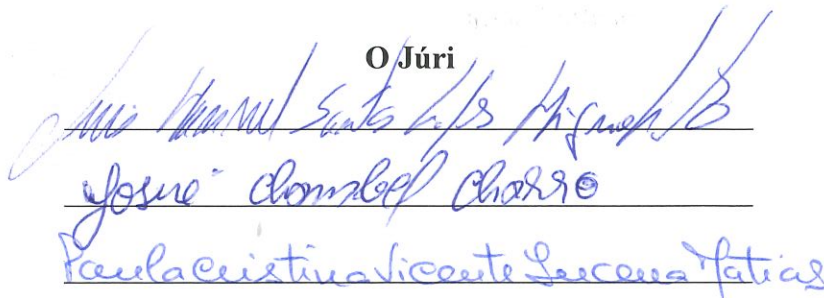 O Júri
Luis Manuel Santos Miguel
Josué Chambel Charro
Paula Cristina Vicente Lucena Matias